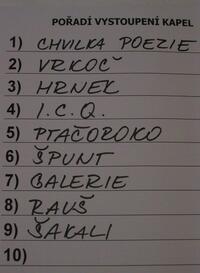 POŘADÍ VYSTOUPENÍ KAPEL
1) CHVILKA POEZIE
2) VRKOČ
3) HRNEK
4) I.C.Q.
5) PTAČOROKO
6) ŠPUNT
7) GALERIE
8) RAUŠ
9) ŠAKALI
10)